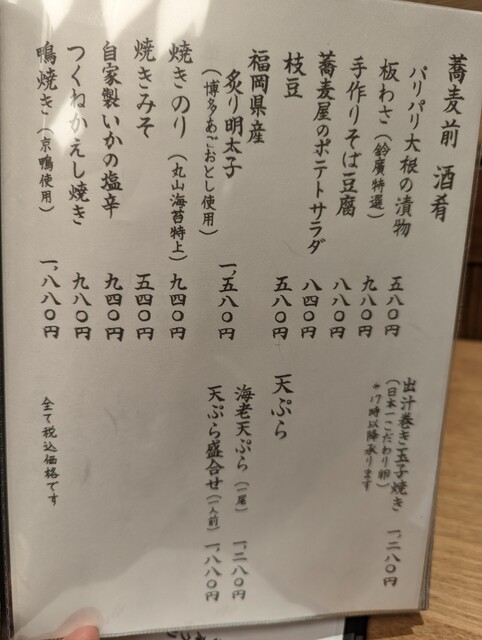 蕎麦前 酒肴
パリパリ大根の漬物 五八〇円
板わさ（鈴廣特選） 九八〇円
手作りそば豆腐 八八〇円
蕎麦屋のポテトサラダ 八四〇円
枝豆 五八〇円
福岡県産
炙り明太子 一、五八〇円
（博多あごおとし使用）
焼きのり（丸山海苔特上） 九四〇円
焼きみそ 五四〇円
自家製いかの塩辛 九四〇円
つくねかえし焼き 九八〇円
鴨焼き（京鴨使用） 一、八八〇円
出汁巻き玉子焼き 一、二八〇円
（日本一こだわり卵）
*17時以降承ります
天ぷら
海老天ぷら（一尾） 一、二八〇円
天ぷら盛合せ（一人前） 一、八八〇円
全て税込価格です